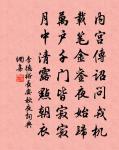 內宮傳詔問戎機
載筆金鑾夜始歸
萬戶千門皆寂寂
月中清露點朝衣
李德裕長安秋夜詞典